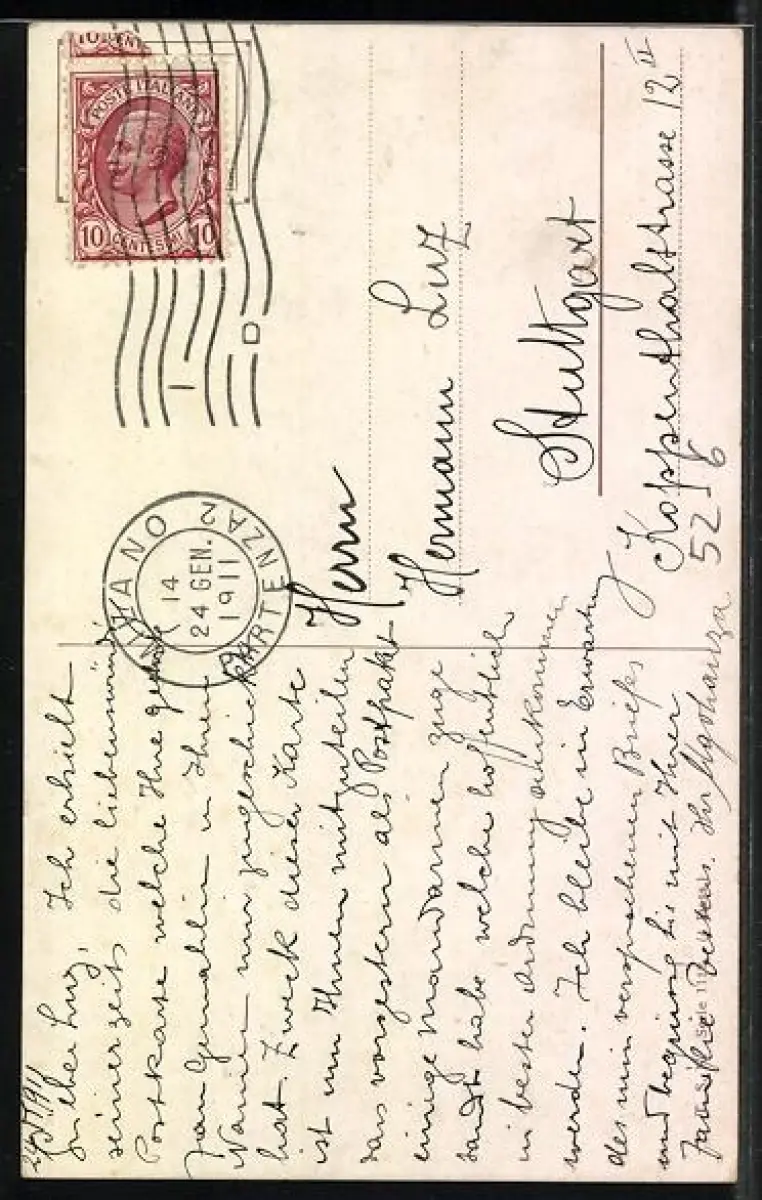 24/I 1911
Lieber Luz, Ich erhielt
seinerzeit die liebenswürd.
Postkarte welche Ihre
Frau Gemahlin in Ihrem
Namen mir zugeschickt
hat. Zweck dieser Karte
ist nun Ihnen mitzuteilen
dass vorgestern als Postpaket
einige Mandarinen
sandt habe welche hoffentlich
in bester Ordnung ankommen
werden. Ich bleibe in Erwartung
des mir versprochenen Briefes
und begrüsse Sie mit Ihrer
Familie bestens. Ihr
10 CENT
POSTE ITALIANE
10 CENTESIMI 10
MILANO
PARTENZA
14
24 GEN.
1911
Herrn
Hermann Luz
Stuttgart
Koppenthalstrasse 12 II
52